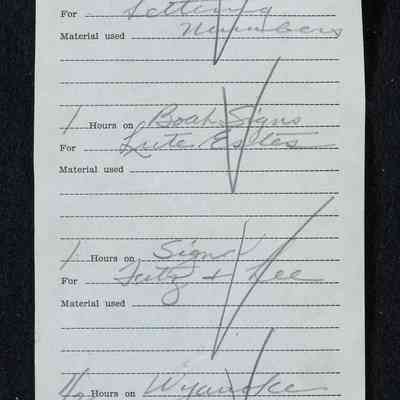 For Lettering
Material used Numbers
1 Hours on Boat Signs
For Lute Estes
Material used
1 Hours on Signs
For Fritz & Lee
Material used
1/2 Hours on Wyanoke